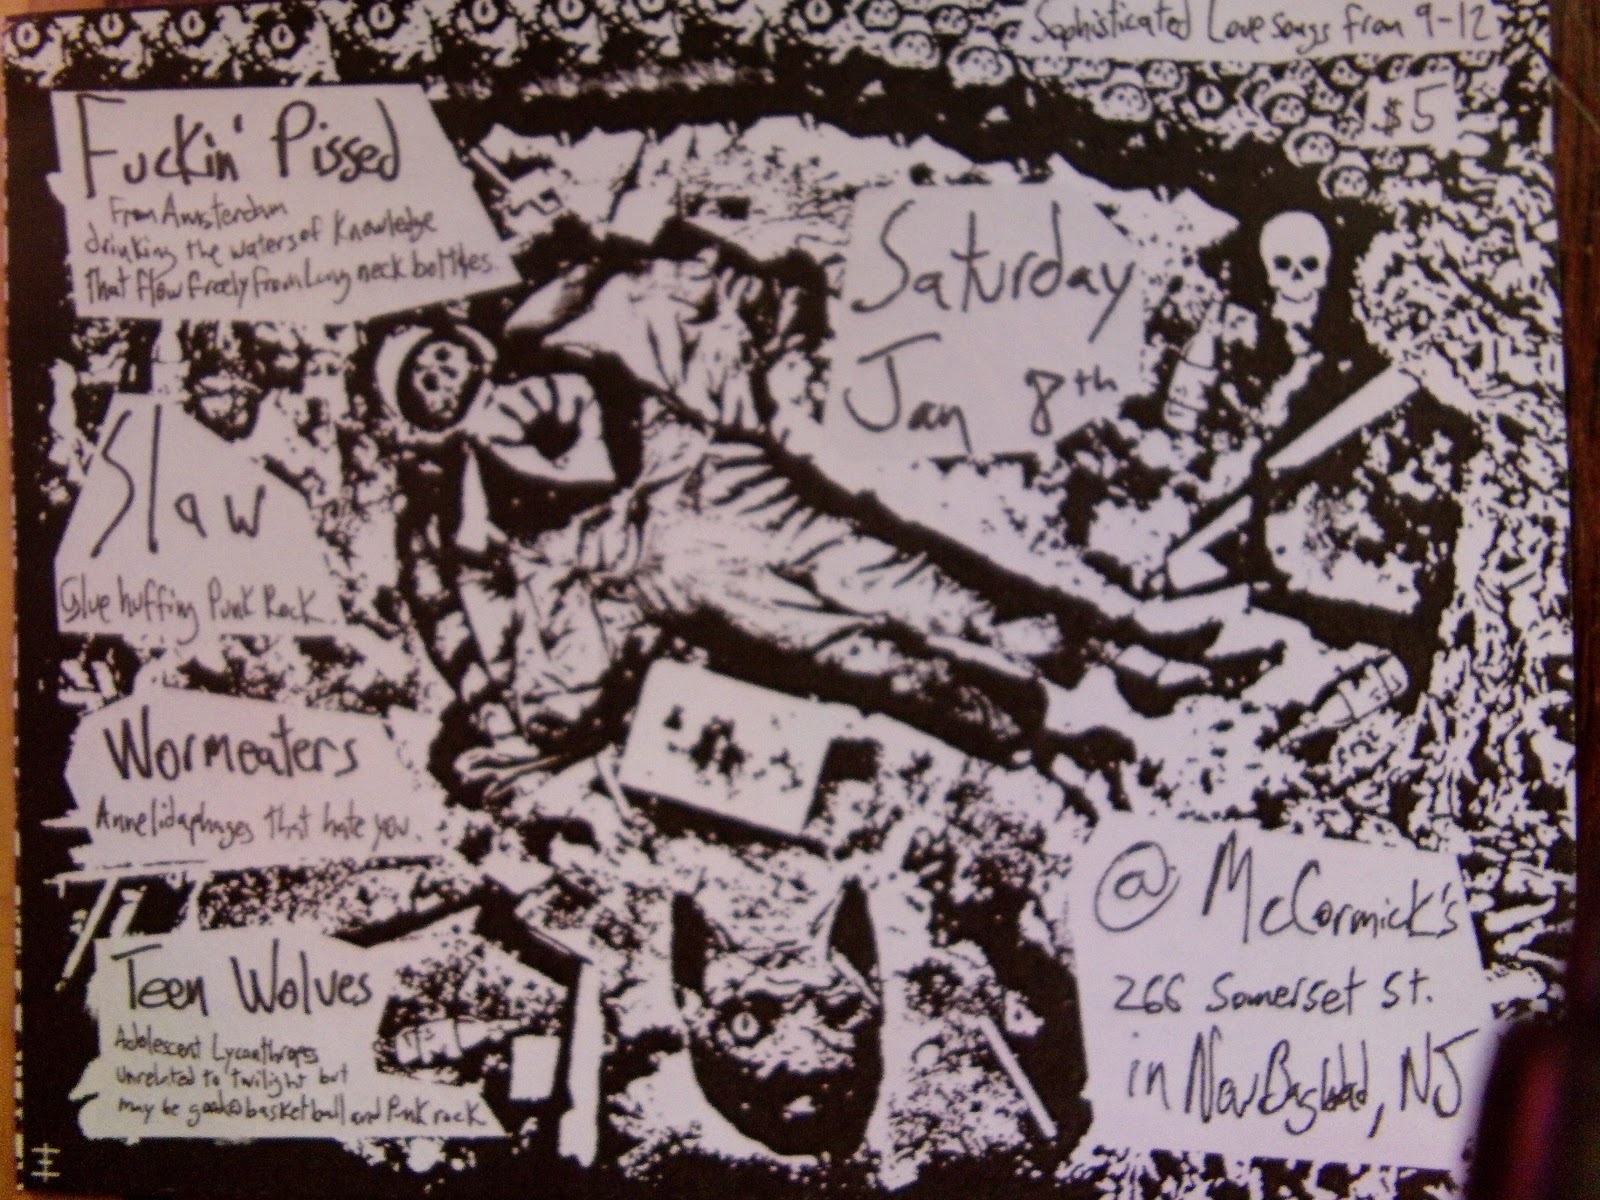 Sophisticated Love songs from 9-12
$5
Fuckin' Pissed
From Amsterdam
drinking the waters of Knowledge
that flow freely from Long neck bottles.
Saturday
Jan 8th
Slaw
Glue huffing Punk Rock
Wormeaters
Annelidaphages that hate you.
Teen Wolves
Adolescent Lycanthropes
unrelated to twilight but
may be good@basketball and Punk rock
@ McCormick's
266 Somerset St.
in New Baghdad, NJ